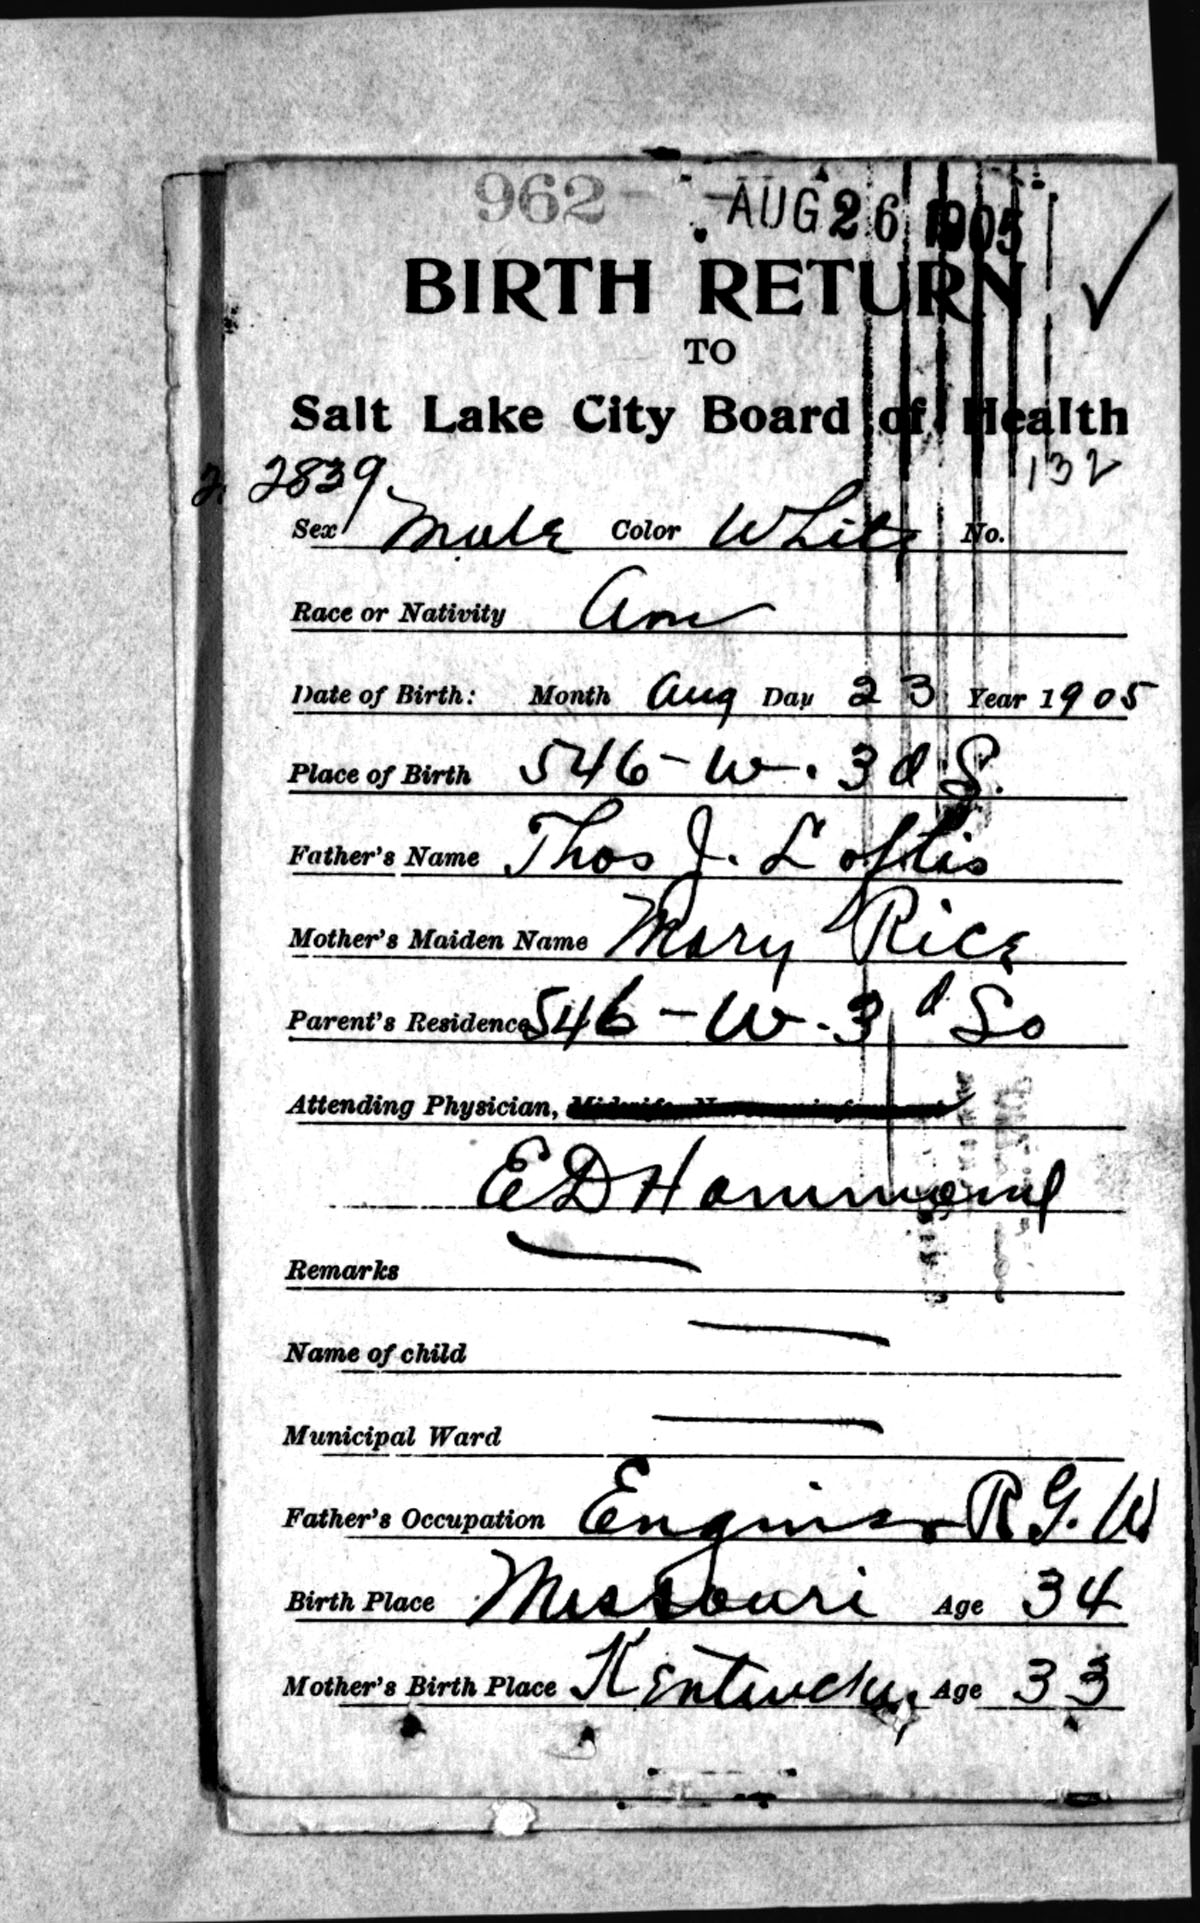 962 AUG 26 1905
BIRTH RETURN
TO
Salt Lake City Board of Health
2839 132
Sex Male Color White No.
Race or Nativity Am
Date of Birth: Month Aug Day 23 Year 1905
Place of Birth 546 - W. 3d S.
Father's Name Thos J. Loftis
Mother's Maiden Name Mary Rice
Parent's Residence 546 - W. 3d So
Attending Physician,
E D Hammond
Remarks
Name of child
Municipal Ward
Father's Occupation Engineer R G. W
Birth Place Missouri Age 34
Mother's Birth Place Kentucky Age 33